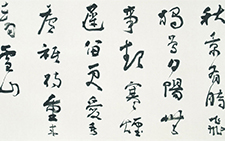 秋景有時飛
獨鳥夕陽無
事起寒煙
遲留更愛吾
待重來